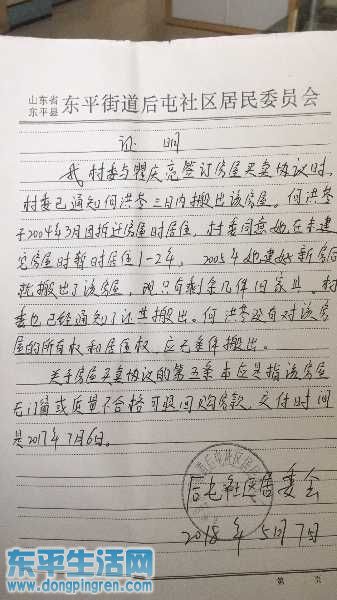 山东省
东平县 东平街道后屯社区居民委员会
证 明
我村委与瞿庆亮签订房屋买卖协议时,
村委已通知何洪参三日内搬出该房屋。何洪参
于2004年3月因拆迁房屋时居住,村委同意她在未建
完房屋时暂时居住1-2年,2005年她建好新房后
就搬出了该房屋,现只有剩余几件旧家业。村
委也已经通知了让其搬出。何洪参没有对该房
屋的所有权和居住权,应无条件搬出。
关于房屋买卖协议的第五条本应是指该房屋
无门窗或质量不合格可退回购房款,交付时间
是2017年7月6日。
后屯社区居委会
2018年5月7日
第 页
东平生活网
www.dongpingren.com